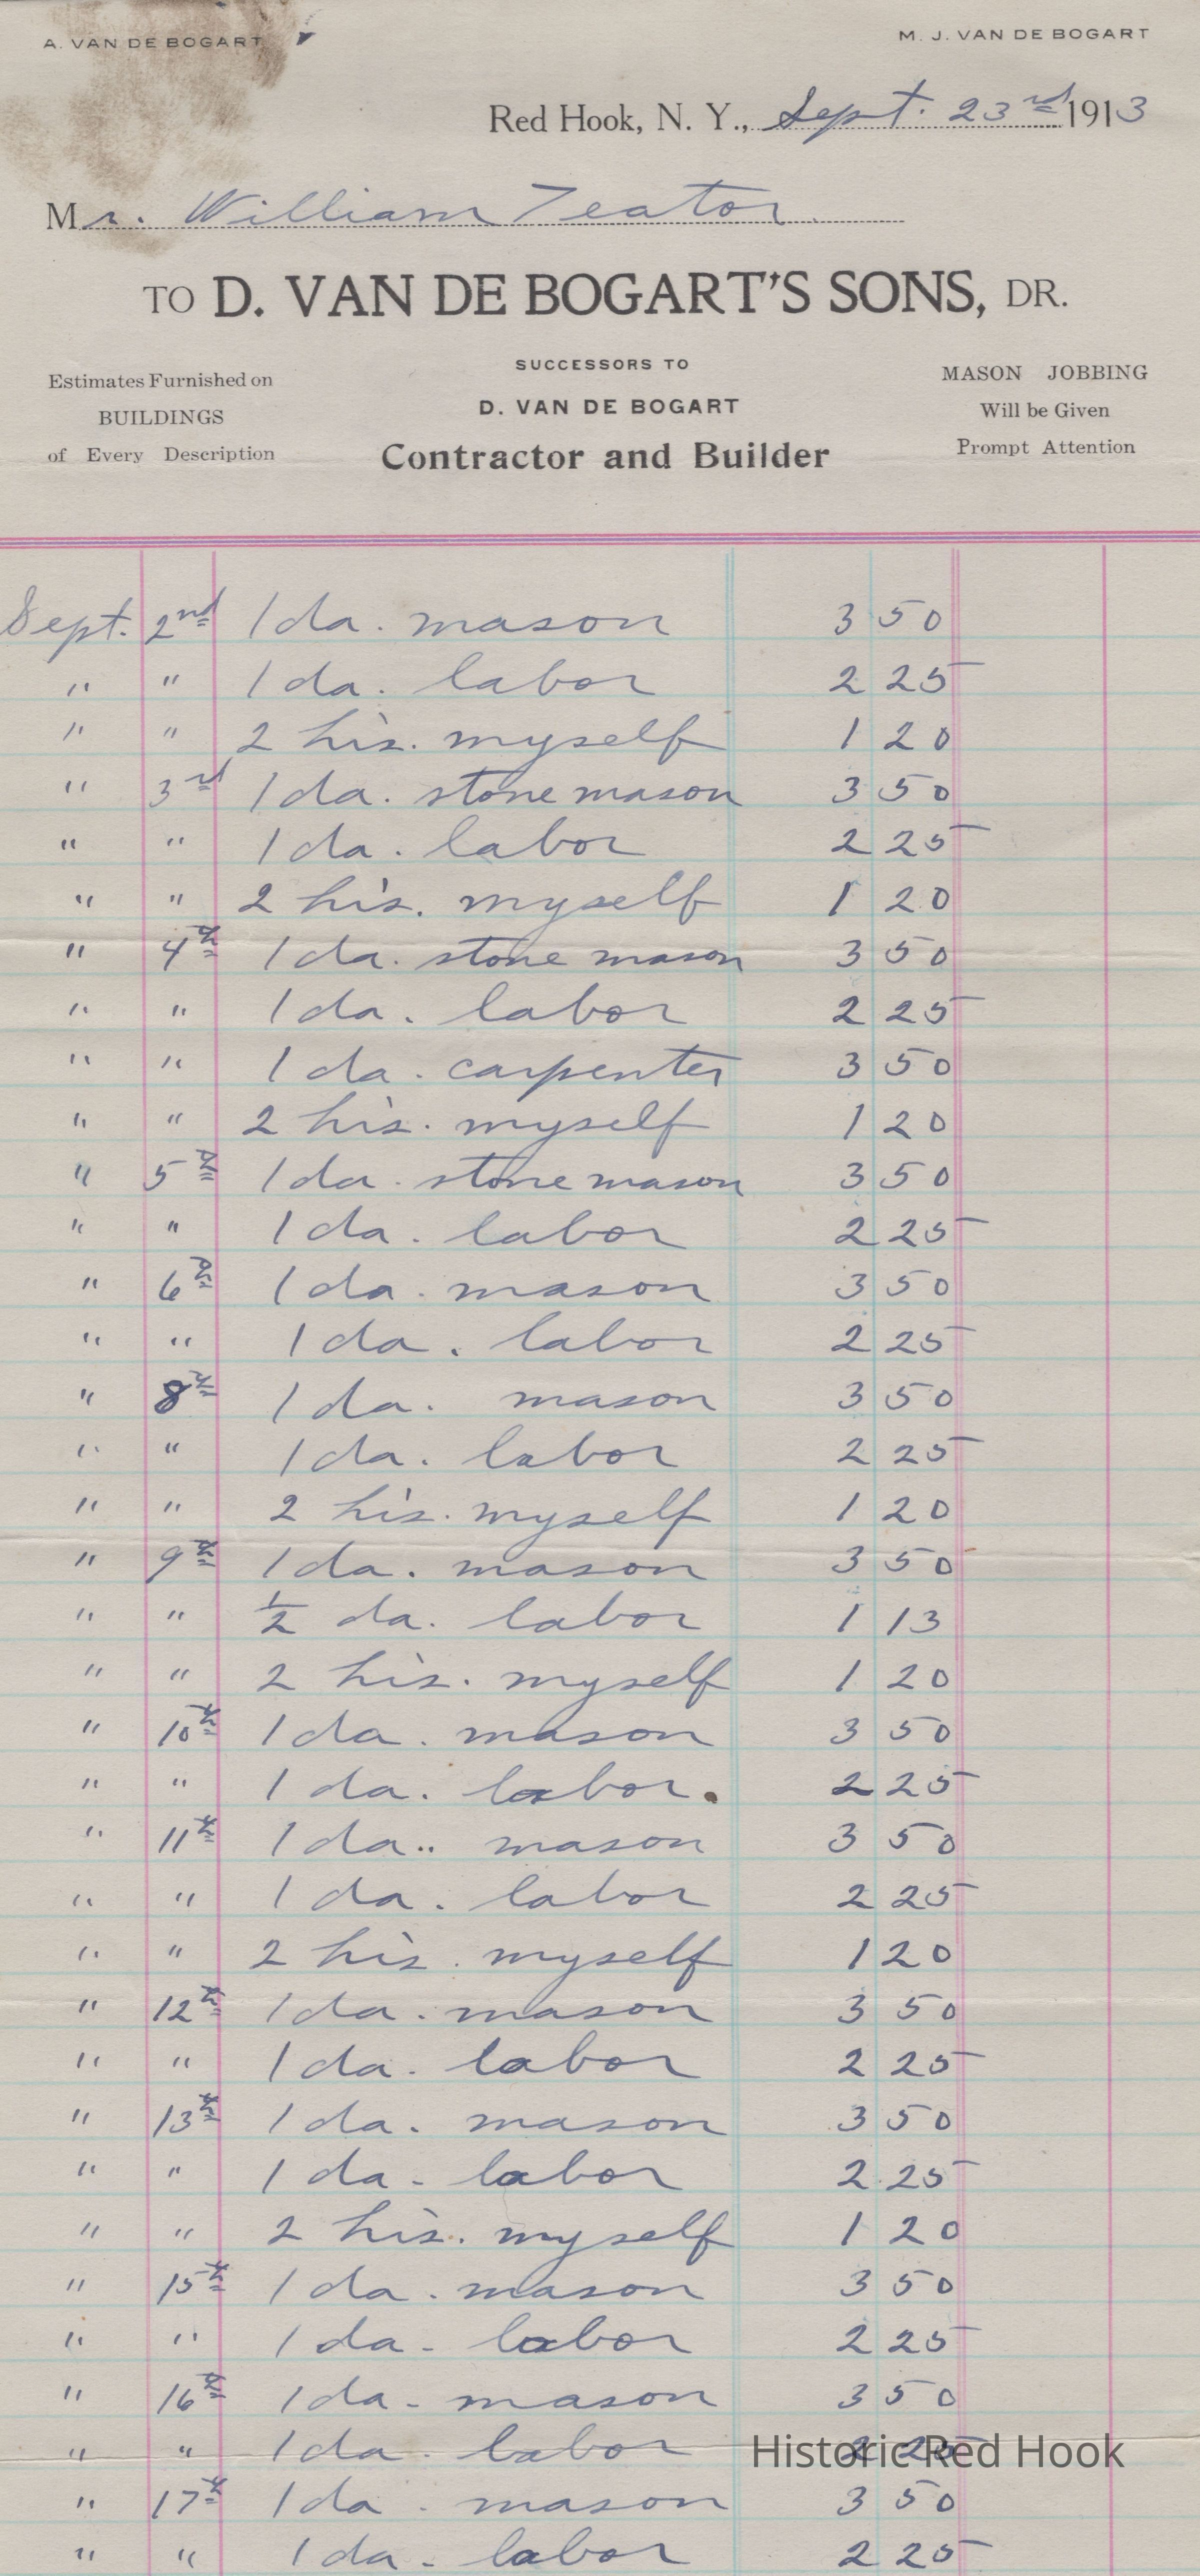 A. VAN DE BOGART M. J. VAN DE BOGART
Red Hook, N. Y., Sept. 23rd 1913
Mr. William Teator
TO D. VAN DE BOGART'S SONS, DR.
Estimates Furnished on
BUILDINGS
of Every Description
SUCCESSORS TO
D. VAN DE BOGART
Contractor and Builder
MASON JOBBING
Will be Given
Prompt Attention
Sept. 2nd 1 da. mason 3 50
" " 1 da. labor 2 25
" " 2 hrs. myself 1 20
" 3rd 1 da. stone mason 3 50
" " 1 da. labor 2 25
" " 2 hrs. myself 1 20
" 4th 1 da. stone mason 3 50
" " 1 da. labor 2 25
" " 1 da. carpenter 3 50
" " 2 hrs. myself 1 20
" 5th 1 da. stone mason 3 50
" " 1 da. labor 2 25
" 6th 1 da. mason 3 50
" " 1 da. labor 2 25
" 8th 1 da. mason 3 50
" " 1 da. labor 2 25
" " 2 hrs. myself 1 20
" 9th 1 da. mason 3 50
" " 1/2 da. labor 1 13
" " 2 hrs. myself 1 20
" 10th 1 da. mason 3 50
" " 1 da. labor. 2 25
" 11th 1 da.. mason 3 50
" " 1 da. labor 2 25
" " 2 hrs. myself 1 20
" 12th 1 da. mason 3 50
" " 1 da. labor 2 25
" 13th 1 da. mason 3 50
" " 1 da. labor 2 25
" " 2 hrs. myself 1 20
" 15th 1 da. mason 3 50
" " 1 da. labor 2 25
" 16th 1 da. mason 3 50
" " 1 da. labor 2 25
Historic Red Hook
" 17th 1 da. mason 3 50
" " 1 da. labor 2 25